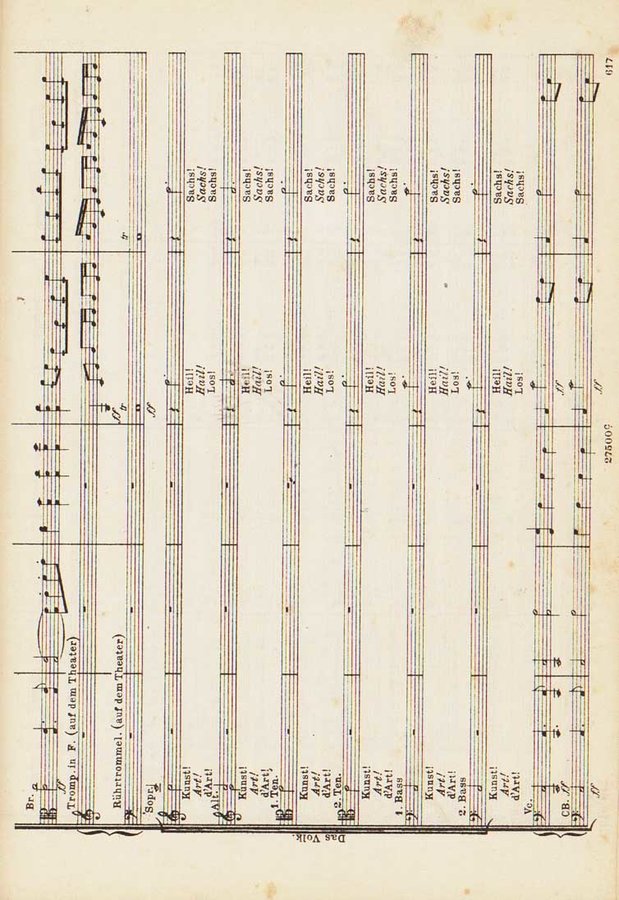 Br.
ff
Tromp. in F. (auf dem Theater)
ff
Rührtrommel. (auf dem Theater)
tr
tr
ff
Das Volk.
Sopr.
Kunst! Heil! Sachs!
Art! Hail! Sachs!
d'Art! Los! Sachs!
Alt.
Kunst! Heil! Sachs!
Art! Hail! Sachs!
d'Art! Los! Sachs!
1. Ten.
Kunst! Heil! Sachs!
Art! Hail! Sachs!
d'Art! Los! Sachs!
2. Ten.
Kunst! Heil! Sachs!
Art! Hail! Sachs!
d'Art! Los! Sachs!
1. Bass
Kunst! Heil! Sachs!
Art! Hail! Sachs!
d'Art! Los! Sachs!
2. Bass
Kunst! Heil! Sachs!
Art! Hail! Sachs!
d'Art! Los! Sachs!
Vc.
ff
ff
CB.
ff
ff
617